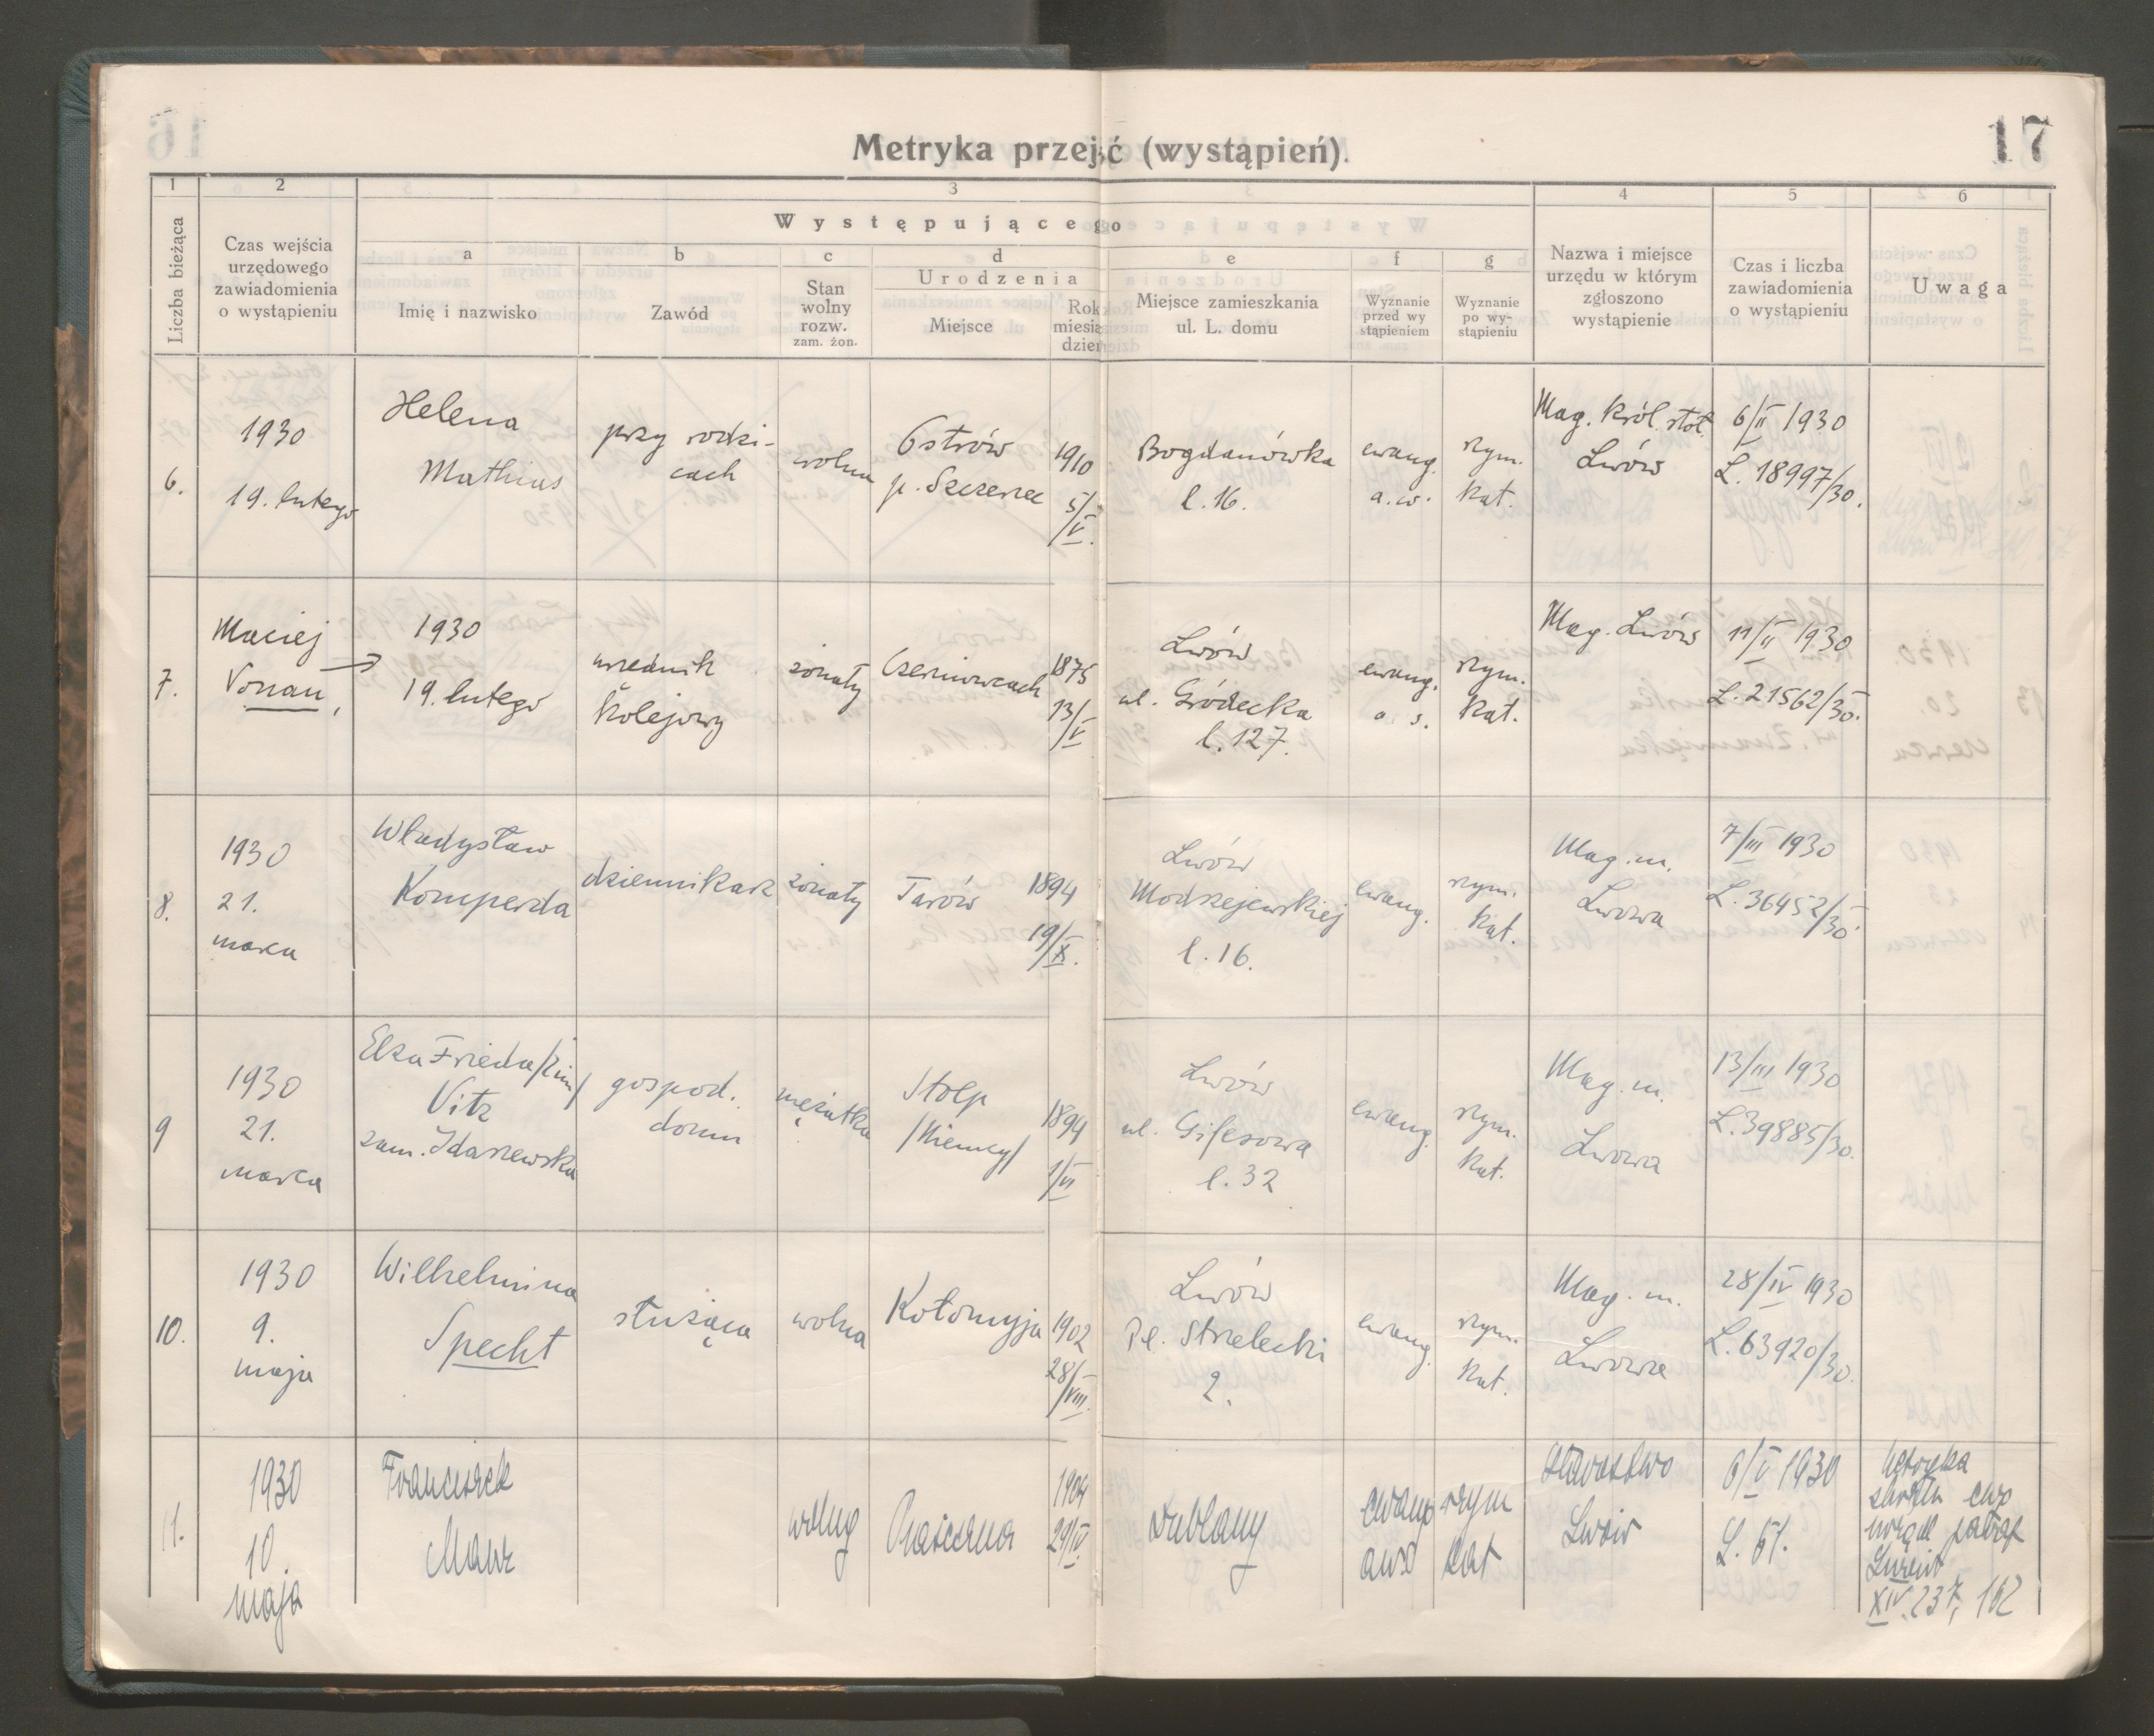 17
Metryka przejść (wystąpień).
1 2 3 4 5 6
Występującego
Liczba bieżąca
Czas wejścia
urzędowego
zawiadomienia
o wystąpieniu
a
Imię i nazwisko
b
Zawód
c
Stan
wolny
rozw.
zam. żon.
d
Urodzenia
Miejsce
Rok
miesią
dzień
e
Miejsce zamieszkania
ul. L. domu
f
Wyznanie
przed wy
stąpieniem
g
Wyznanie
po wy-
stąpieniu
Nazwa i miejsce
urzędu w którym
zgłoszono
wystąpienie
Czas i liczba
zawiadomienia
o wystąpieniu
Uwaga
6.
1930
19. lutego
Helena
Mathias
przy rodzi-
cach
wolna
Ostrów
p. Szczerzec
1910
5/V.
Bogdanówka
l. 16.
ewang.
a.w.
rzym.
kat.
Mag. król. stoł.
Lwów
6/II 1930
L. 18997/30.
7.
Maciej
Vonau,
1930
19. lutego
urzędnik
kolejowy
żonaty
Czerniowcach
1875
13/V
Lwów
ul. Gródecka
l. 127.
ewang.
a. s.
rzym.
kat.
Mag. Lwów
11/II 1930
L. 21562/30.
8.
1930
21.
marca
Władysław
Komperda
dziennikarz
żonaty
Tarów
1894
19/X.
Lwów
Modrzejewskiej
l. 16.
ewang.
rzym.
kat.
Mag. m.
Lwowa
7/III 1930
L. 36452/30.
9
1930
21.
marca
Elza Frieda
Vitz
zam. Idaszewska
gospod.
domu
mężatka
Stolp
/Niemcy/
1894
1/VI
Lwów
ul.
l. 32
ewang.
rzym.
kat.
Mag. m.
Lwowa
13/III 1930
L. 39885/30.
10.
1930
9.
maja
Wilhelmina
Specht
służąca
wolna
Kołomyja
1902
28/VIII.
Lwów
Pl. Strzelecki
2.
ewang.
rzym.
kat.
Mag. m.
Lwowa
28/IV 1930
L. 63920/30.
11.
1930
10
maja
Franciszek
Manz
wolny
1904
29/IV.
Dublany
ewang
rzym
kat
Starostwo
Lwów
6/V 1930
L. 61.
Metryka
XIV. 237, 162